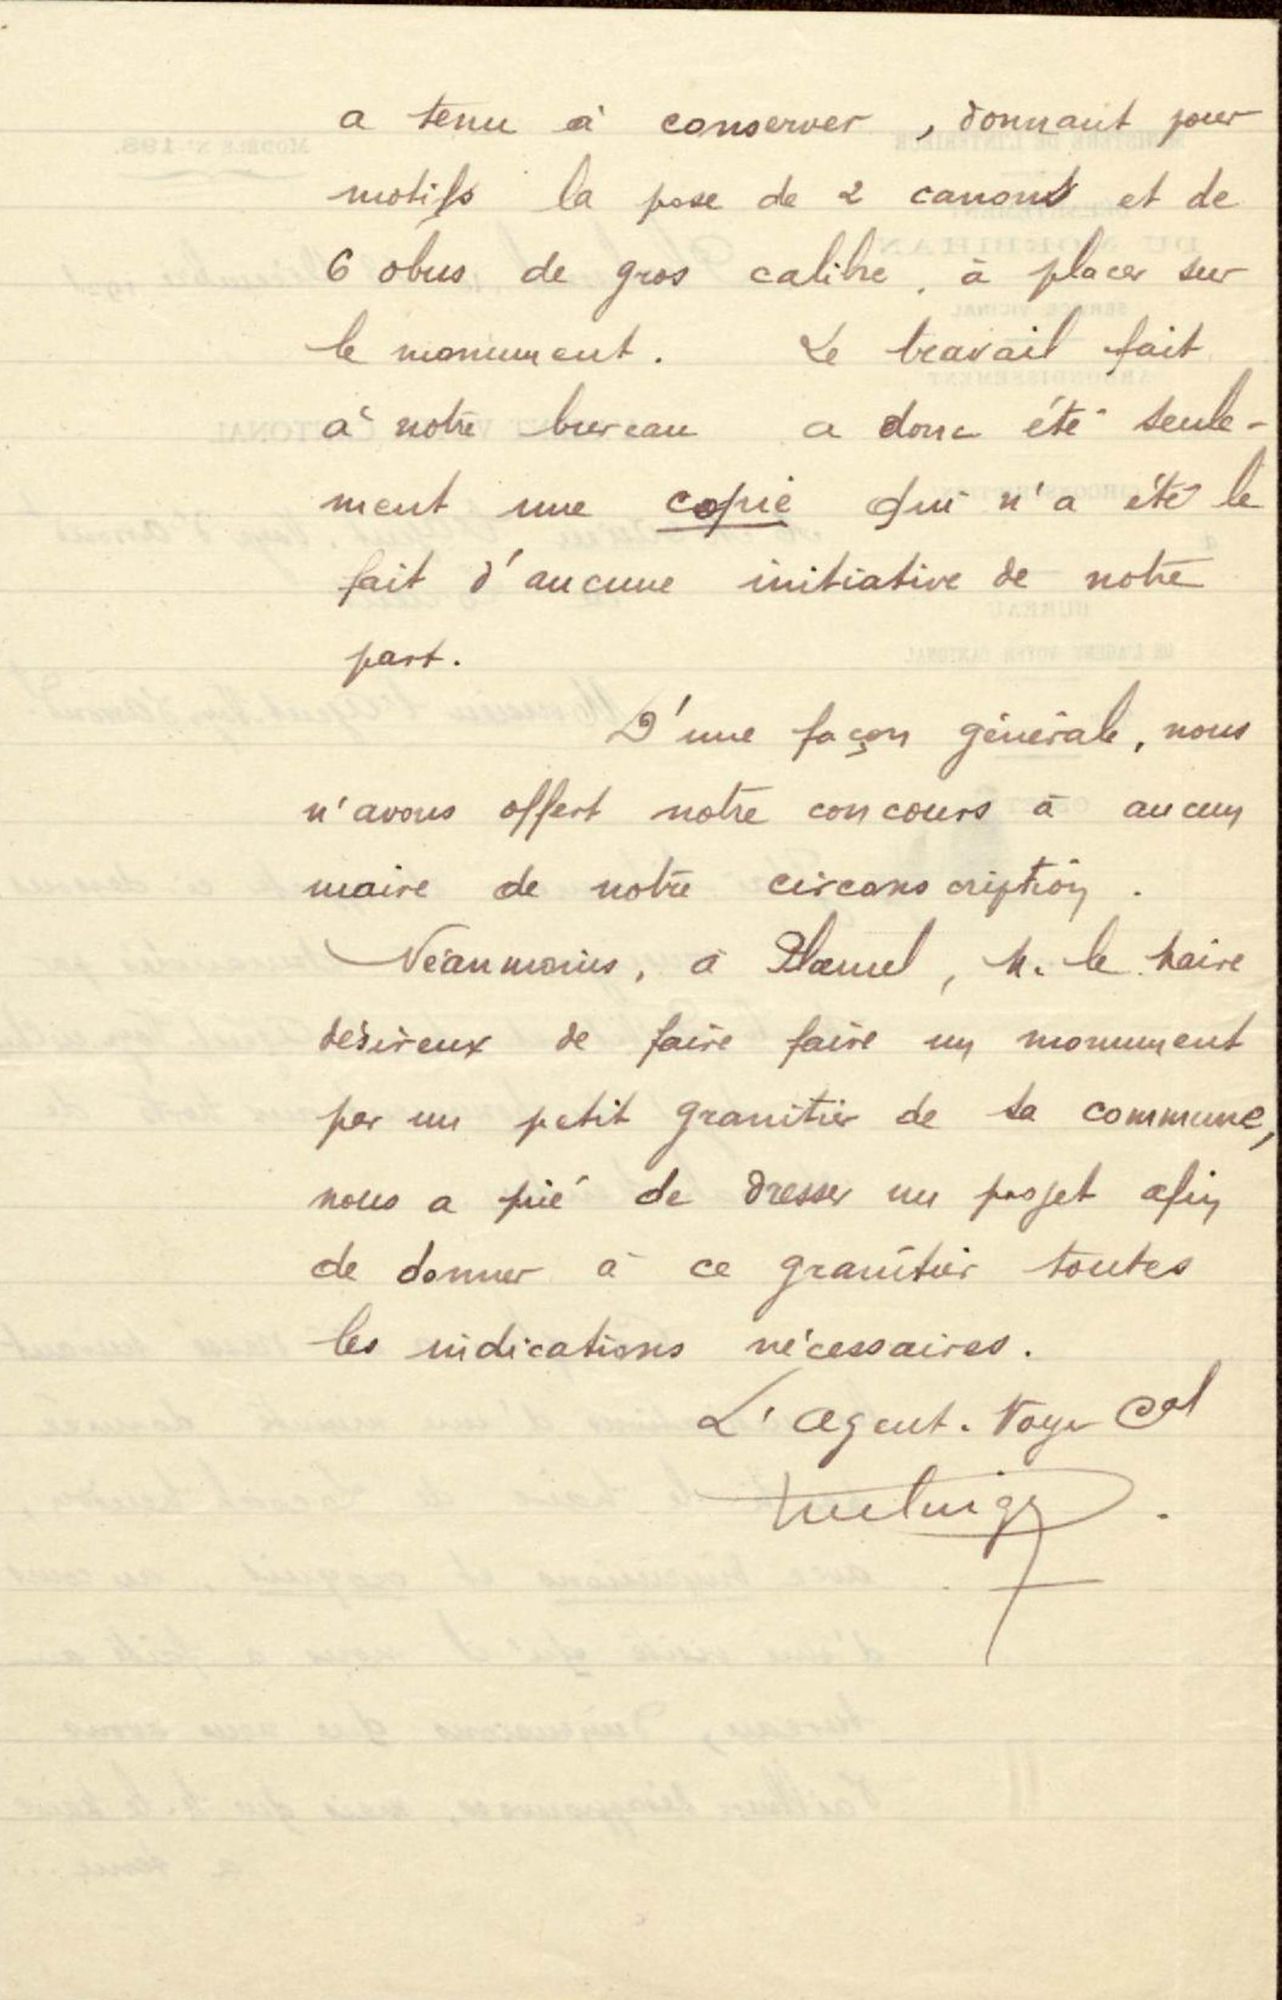 a tenu à conserver, donnant pour
motifs la pose de 2 canons et de
6 obus de gros calibre, à placer sur
le monument. Le travail fait
à notre bureau a donc été seule-
ment une copie qui n'a été le
fait d'aucune initiative de notre
part.
D'une façon générale, nous
n'avons offert notre concours à aucun
maire de notre circonscription.
Néanmoins, à Plœmel, M. le Maire
désireux de faire faire un monument
par un petit granitier de sa commune,
nous a prié de dresser un projet afin
de donner à ce granitier toutes
les indications nécessaires.
L'Agent-Voyer Cal